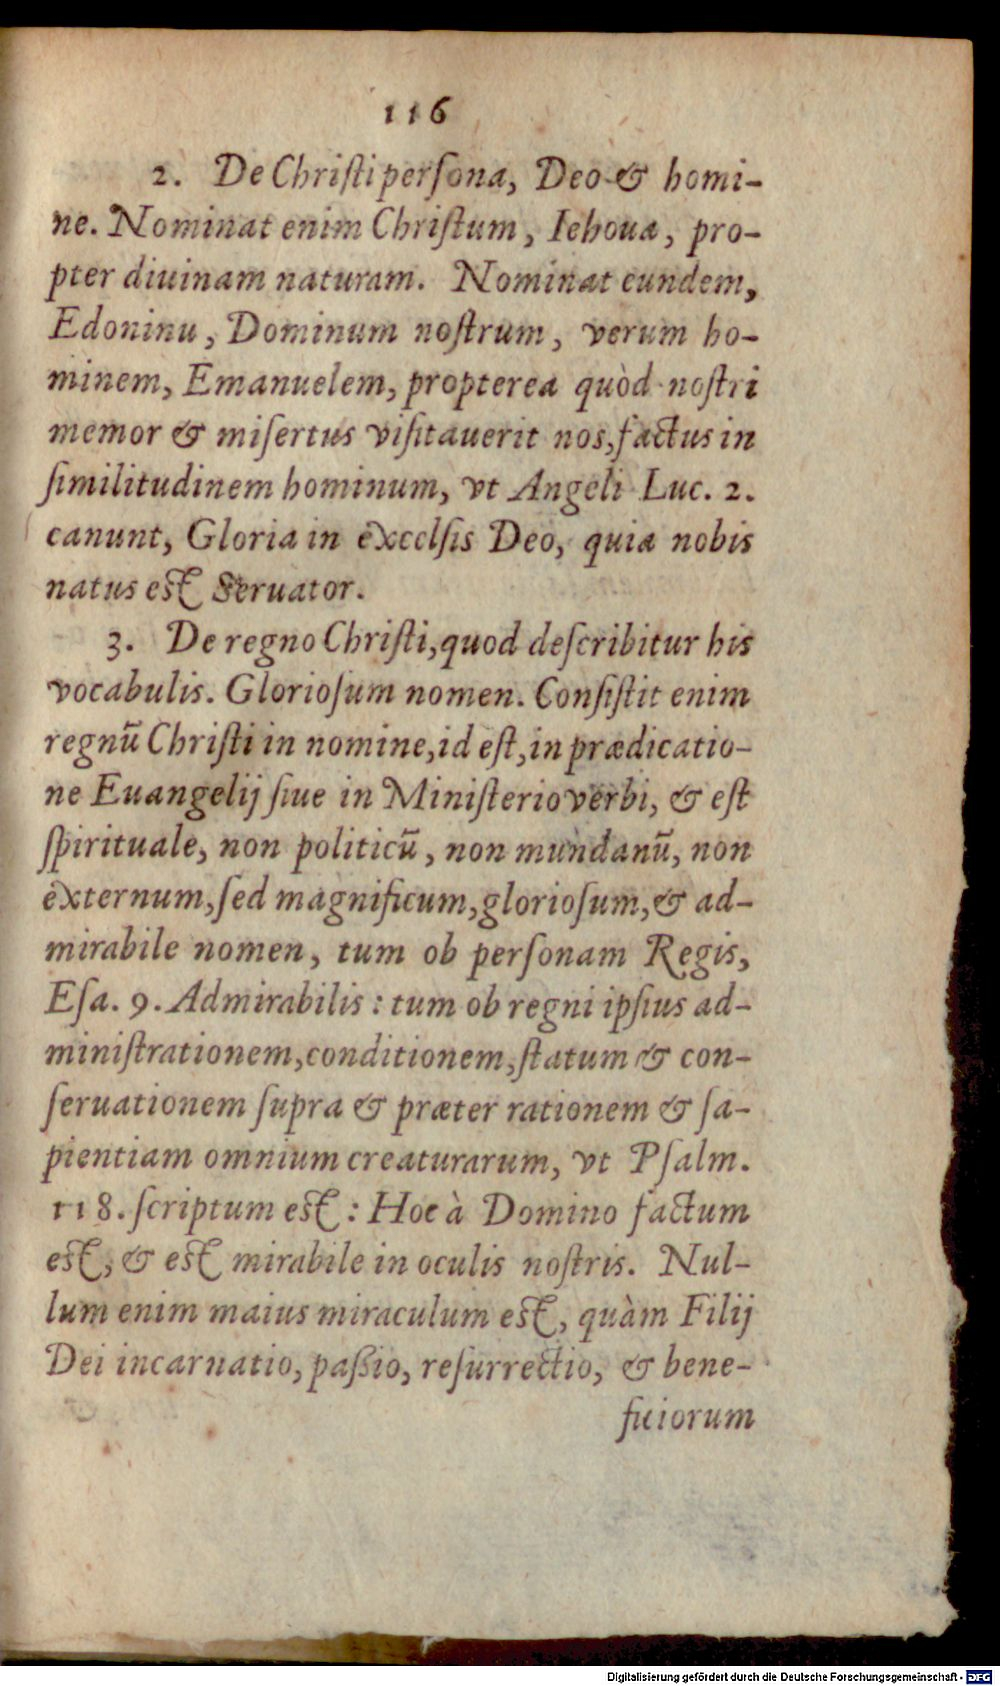 116
2. De Christi persona, Deo & homi-
ne. Nominat enim Christum, Iehoua, pro-
pter diuinam naturam. Nominat eundem,
Edoninu, Dominum nostrum, verum ho-
minem, Emanuelem, propterea quòd nostri
memor & misertus visitauerit nos, factus in
similitudinem hominum, vt Angeli Luc. 2.
canunt, Gloria in excelsis Deo, quia nobis
natus est Seruator.
3. De regno Christi, quod describitur his
vocabulis. Gloriosum nomen. Consistit enim
regnū Christi in nomine, id est, in prædicatio-
ne Euangelij siue in Ministerio verbi, & est
spirituale, non politicū, non mundanū, non
externum, sed magnificum, gloriosum, & ad-
mirabile nomen, tum ob personam Regis,
Esa. 9. Admirabilis: tum ob regni ipsius ad-
ministrationem, conditionem, statum & con-
seruationem supra & præter rationem & sa-
pientiam omnium creaturarum, vt Psalm.
118. scriptum est: Hoc à Domino factum
est, & est mirabile in oculis nostris. Nul-
lum enim maius miraculum est, quàm Filij
Dei incarnatio, passio, resurrectio, & bene-
ficiorum
Digitalisierung gefördert durch die Deutsche Forschungsgemeinschaft - DFG